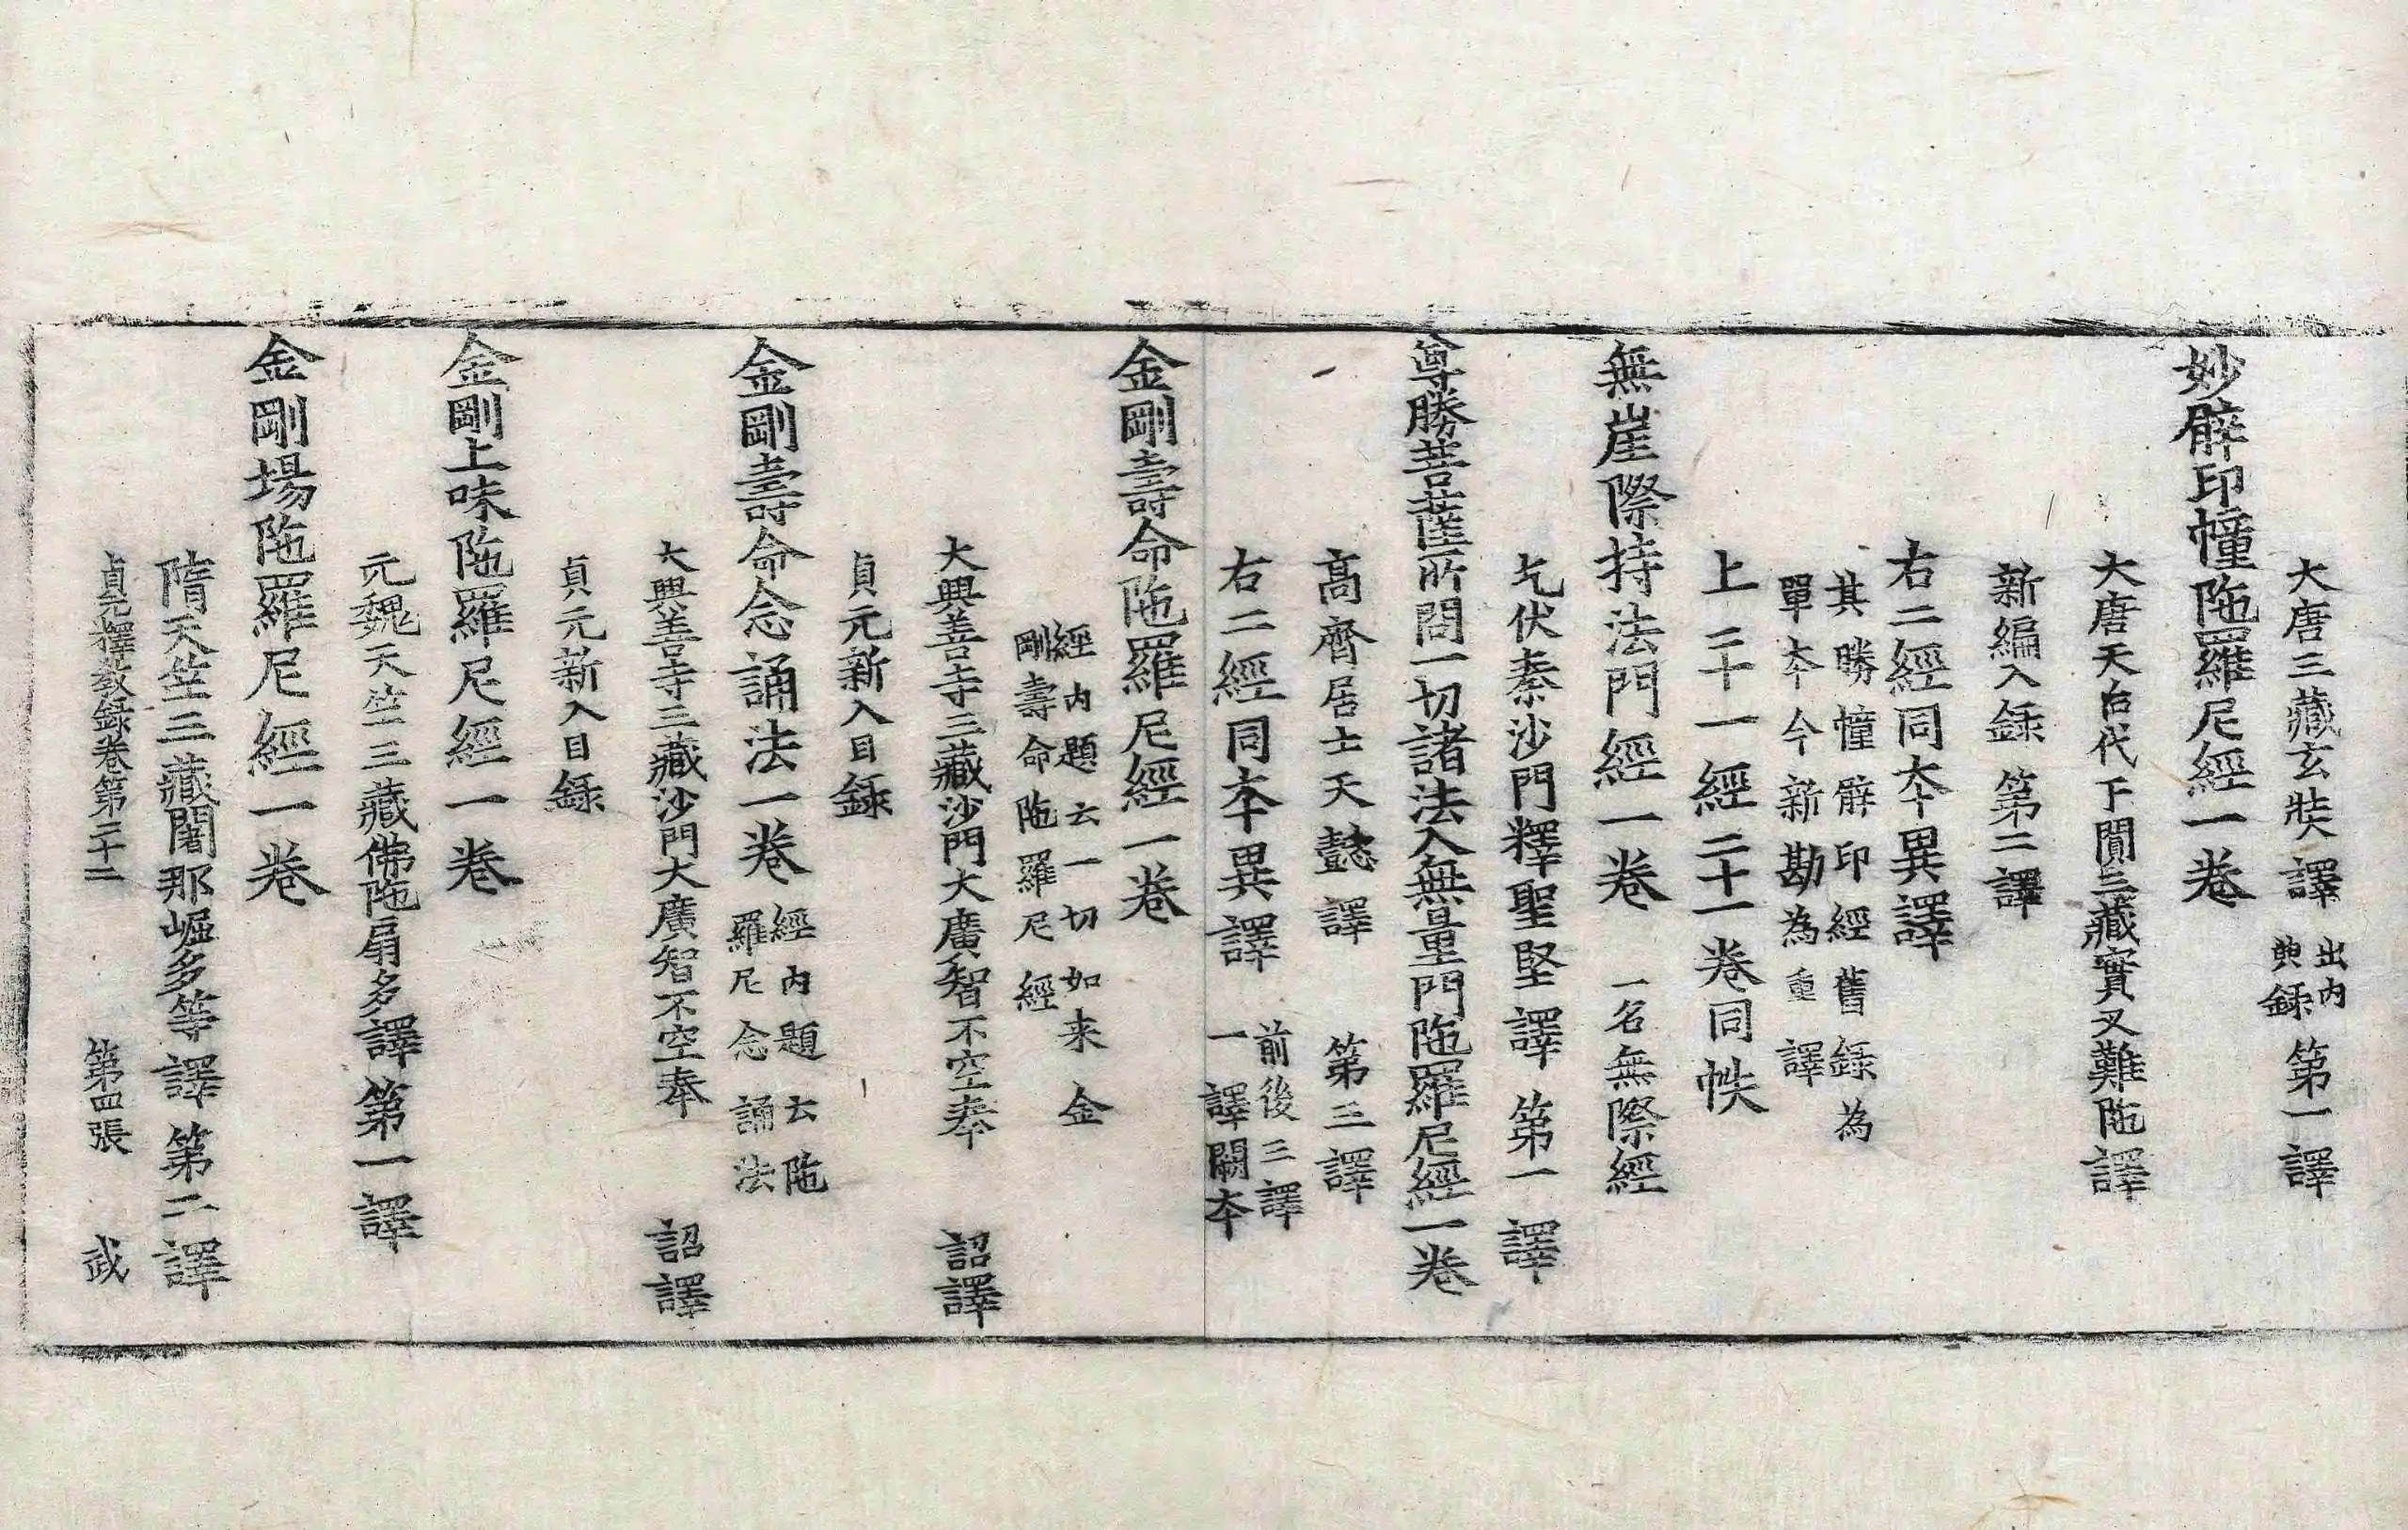 大唐三藏玄奘譯出內典録第一譯
妙臂印幢陁羅尼經一卷
大唐天后代于闐三藏實叉難陁譯
新編入録第二譯
右二經同本異譯
其勝幢臂印經舊録為
單本今新勘為重譯
上二十一經二十一卷同帙
無崖際持法門經一卷一名無際經
乞伏秦沙門釋聖堅譯第一譯
尊勝菩薩所問一切諸法入無量門陁羅尼經一卷
高齊居士天懿譯第三譯
右二經同本異譯前後三譯一譯闕本
金剛壽命陁羅尼經一卷
經內題云一切如来金
剛壽命陁羅尼經
大興善寺三藏沙門大廣智不空奉詔譯
貞元新入目録
金剛壽命念誦法一卷經內題云陁羅尼念誦法
大興善寺三藏沙門大廣智不空奉詔譯
貞元新入目録
金剛上味陁羅尼經一卷
元魏天竺三藏佛陁扇多譯第一譯
金剛場陁羅尼經一卷
隋天竺三藏闍那崛多等譯第二譯
貞元釋教録卷第二十二第四張武